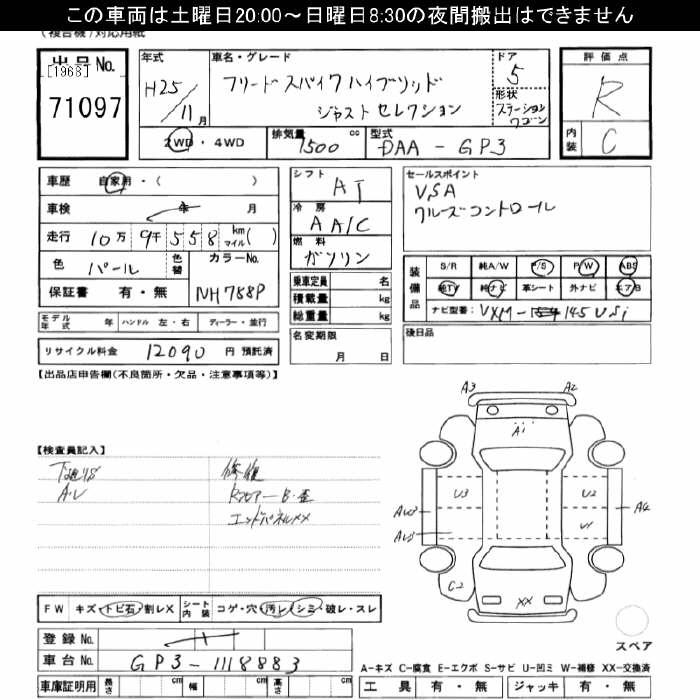 この車両は土曜日20:00～日曜日8:30の夜間搬出はできません
(複合機)対応用紙
出品No.
[1968]
71097
年式
H25/11月
車名・グレード
フリードスパイクハイブリッド
ジャストセレクション
ドア
5
形状
ステーションワゴン
評価点
R
内装
C
2WD・4WD
排気量
1500 cc
型式
DAA-GP3
車歴 自家用・( )
車検 年 月
走行 10万9千558 km マイル( )
色 パール
色替
カラーNo.
NH788P
保証書 有・無
シフト
AT
冷房
AAC
燃料
ガソリン
乗車定員 名
積載量 kg
総重量 kg
セールスポイント
VSA
クルーズコントロール
装備品
S/R 純A/W P/S P/W ABS
純TV 純ナビ 革シート 外ナビ エアB
ナビ型番: VXM-145VSi
モデル年式 年 ハンドル 左・右 ディーラー・並行
リサイクル料金 12090 円 預託済
名変期限
月 日
後日品
【出品店申告欄(不良箇所・欠品・注意事項等)】
【検査員記入】
修復
エンドパネルXX
A3
A2
A1
U3
U2
U1
A4
C2
XX
スペア
FW キズ・トビ石・割レX
シート内装 コゲ・穴・汚レ・シミ・破レ・スレ
登録No.
車台No. GP3-1118883
車庫証明用 長さ cm 幅 cm 高さ cm
A-キズ C-腐食 E-エクボ S-サビ U-凹ミ W-補修 XX-交換済
工具 有・無 ジャッキ 有・無